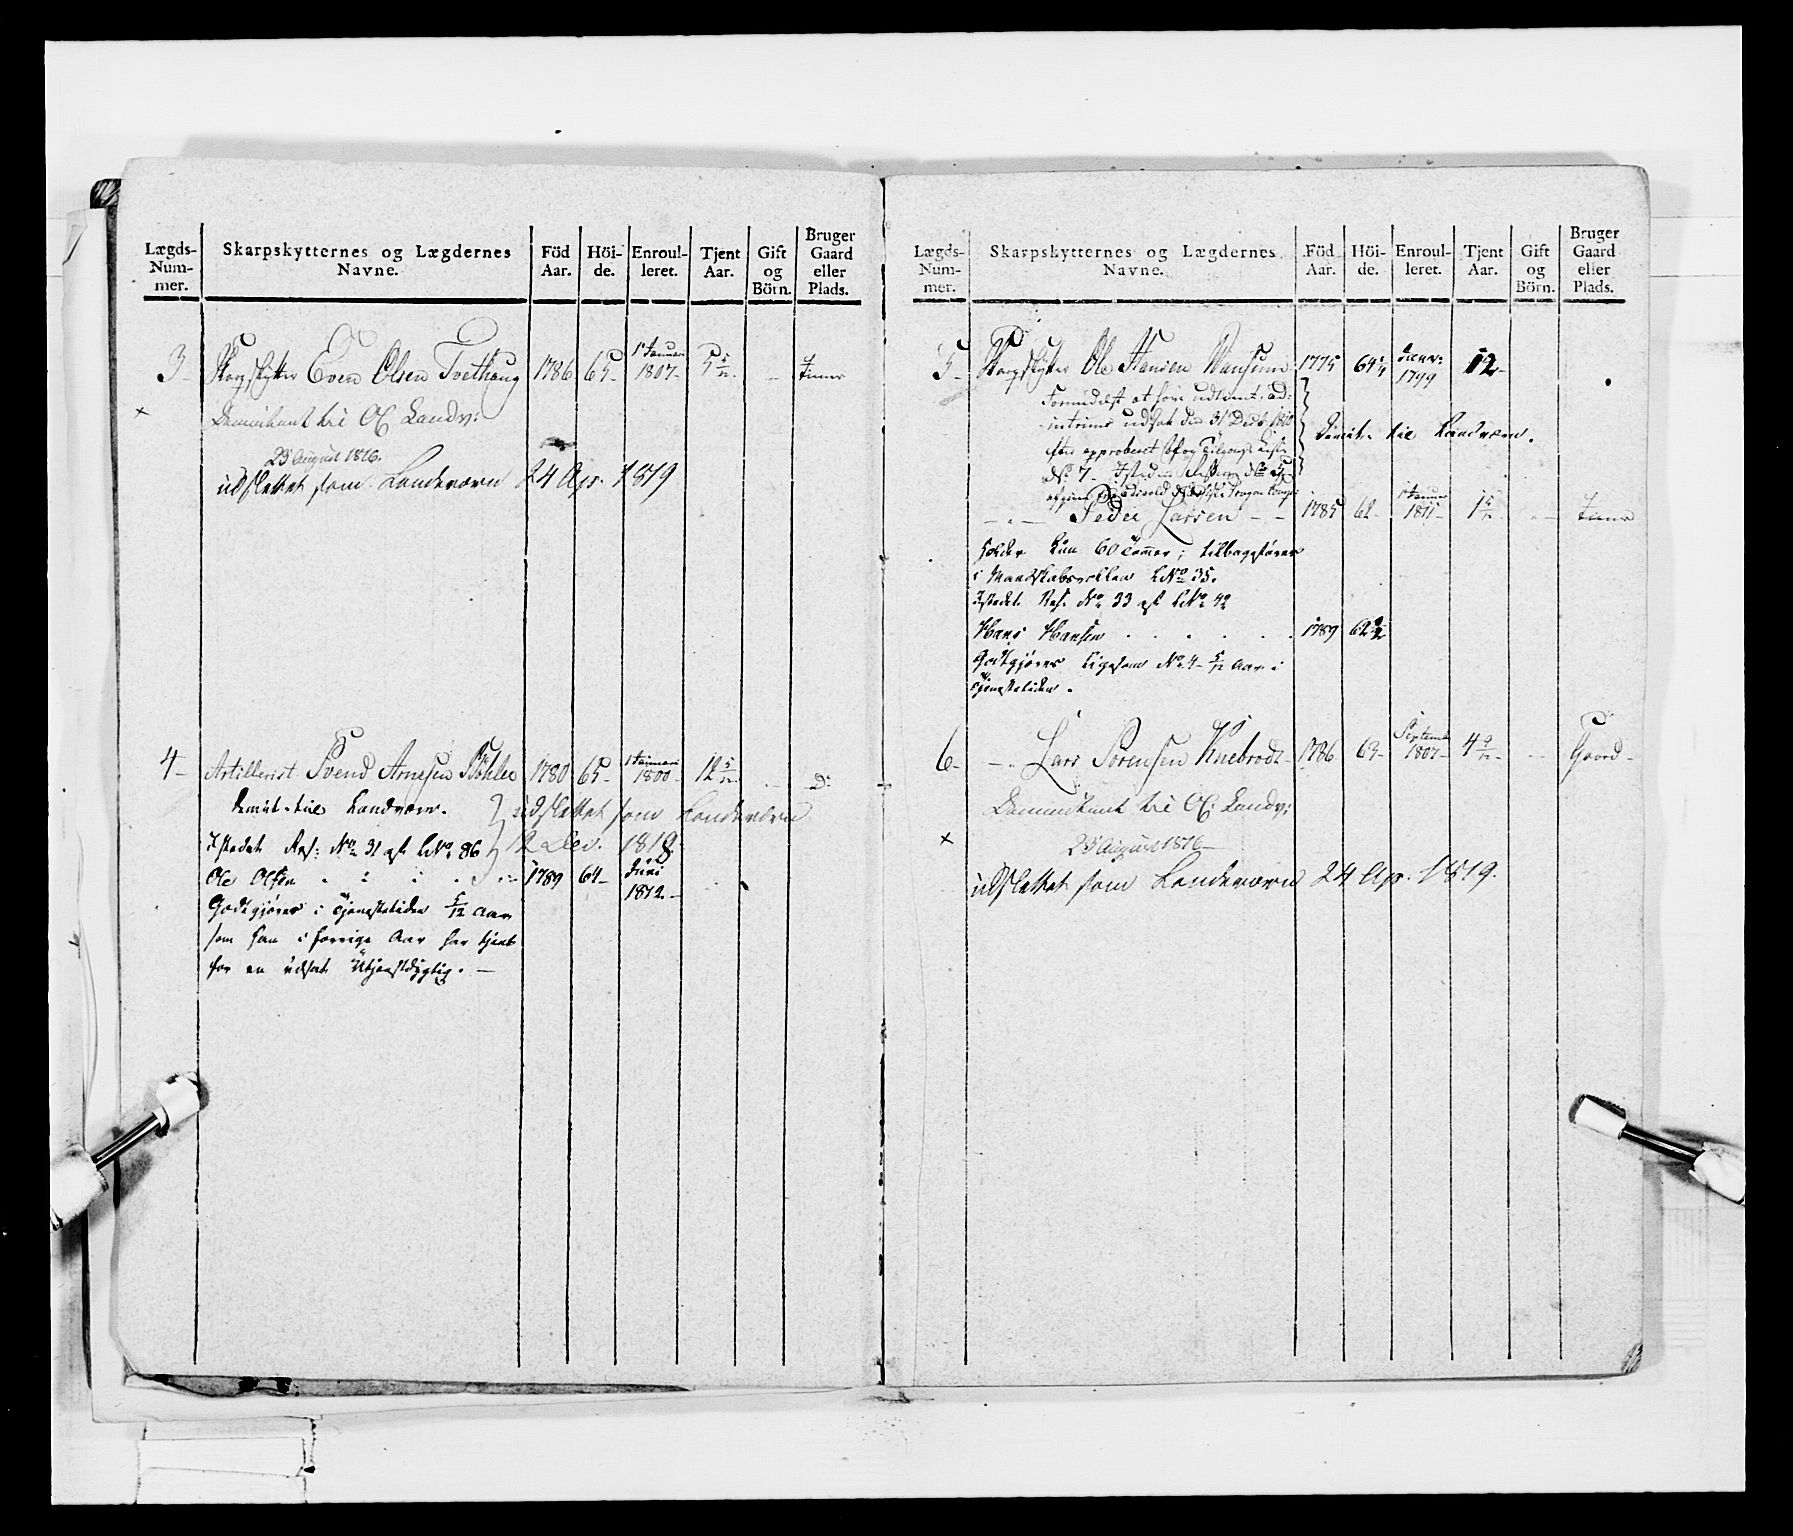 Lægds-Num-mer. Skarpskytternes og Lægdernes Navne. Föd Aar. Höi-de. Enroul-leret. Tjent Aar. Gift og Börn. Bruger Gaard eller Plads.
3- Skarpskytter Even Olsen Tvethaug 1786 65- 1 Januari 1807- 5 5/12 - Tiener
× Demitteret til Landv:
23 August 1816.
udslettet som Landeværn 24 Ap. 1819
4- Artillerist Svend Arnesen Böhler 1780 65- 1 Januari 1800- 12 5/12 - D:
demit. til Landværn. udslettet som Landeværn
Istedet Res: No 31 af LNo 86 12 Dec. 1818
Ole Olsen 1789 64- Juni 1812-
Godtgjøres i Tjenestetiden 5/12 Aar
som han i forrige Aar har tjent
for en udsat Utjenstdygtig. -
Lægds-Num-mer. Skarpskytternes og Lægdernes Navne. Föd Aar. Höi-de. Enroul-leret. Tjent Aar. Gift og Börn. Bruger Gaard eller Plads.
5- Skarpskytter Ole Hansen 1775 64 1/4 Janr: 1799 12-
Formedelst at have udtient, ad
interims udsat den 31 Decb 1810
demit. til Landværn.
No 7- Istedet
-"- Peder Larsen - - 1785 62- 1 Januar 1811- 1 5/12 - Tiener
holder kun 60 Tommer; tilbageføres
i Mandskabsrollen LNo 35.
Istedet Res. No 33 af LNo 42
Hans Hansen 1789 62 1/2
Godtgjøres ligesom No 4- 5/12 Aar i
Tjenestetiden.
6- -"- Lars Sörensen Knebrodt- 1786 63- Septemb 1807- 4 9/12 - Gaard-
Demitteret til Landv:
× 23 August 1816-
udslettet som Landeværn 24 Ap. 1819.